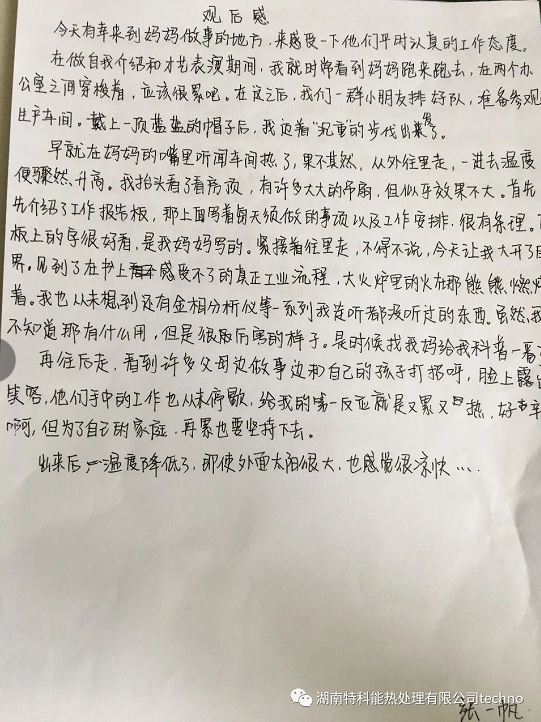 观后感
今天有幸来到妈妈做事的地方，来感受一下他们平时认真的工作态度。
在做自我介绍和才艺表演期间，我就时常看到妈妈跑来跑去，在两个办
公室之间穿梭着，应该很累吧。在这之后，我们一群小朋友排好队，准备参观
生产车间。戴上一顶蓝蓝的帽子后，我迈着“沉重”的步伐出发了。
早就在妈妈的嘴里听闻车间热了，果不其然，从外往里走，一进去温度
便骤然升高。我抬头看了看房顶，有许多大大的吊扇，但似乎效果不大。首先
先介绍了工作报告板，那上面写着每天须做的事项以及工作安排，很有条理。
板上的字很好看，是我妈妈写的。紧接着往里走，不得不说，今天让我大开了
界。见到了在书上感受不了的真正工业流程，大火炉里的火在那熊熊燃烧
着。我也从未想到还有金相分析仪等一系列我连听都没听过的东西。虽然我
不知道那有什么用，但是很厉害的样子。是时候找我妈给我科普一番
再往后走，看到许多父母边做事边和自己的孩子打招呼，脸上露出
笑容，他们手中的工作也从未停歇，给我的第一反应就是又累又热，好辛
啊，但为了自己的家庭，再累也要坚持下去。
出来后温度降低了，即使外面太阳很大，也感觉很凉快…
张一帆
湖南特科能热处理有限公司techno